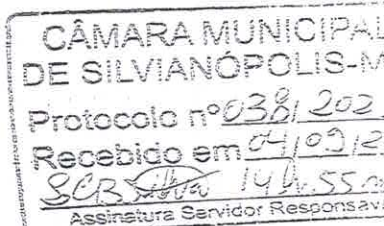 CÂMARA MUNICIPAL
DE SILVIANÓPOLIS-M
Protocolo nº 038/202
Recebido em 04/09/2
14h.55m
Assinatura Servidor Responsáv